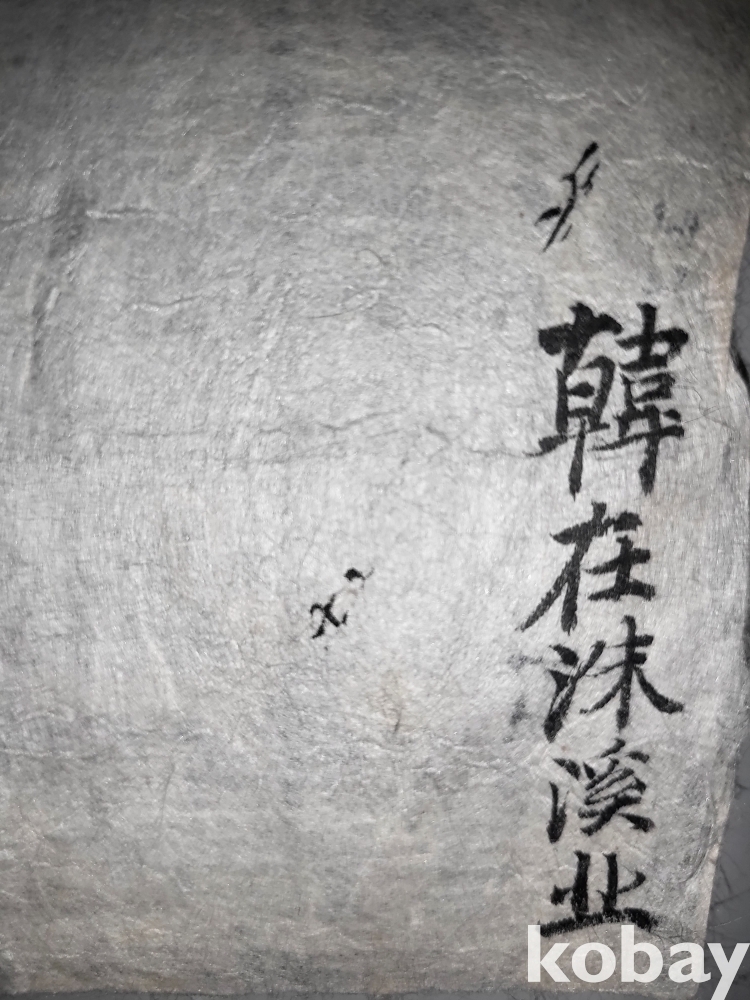 韓在洙溪北
kobay